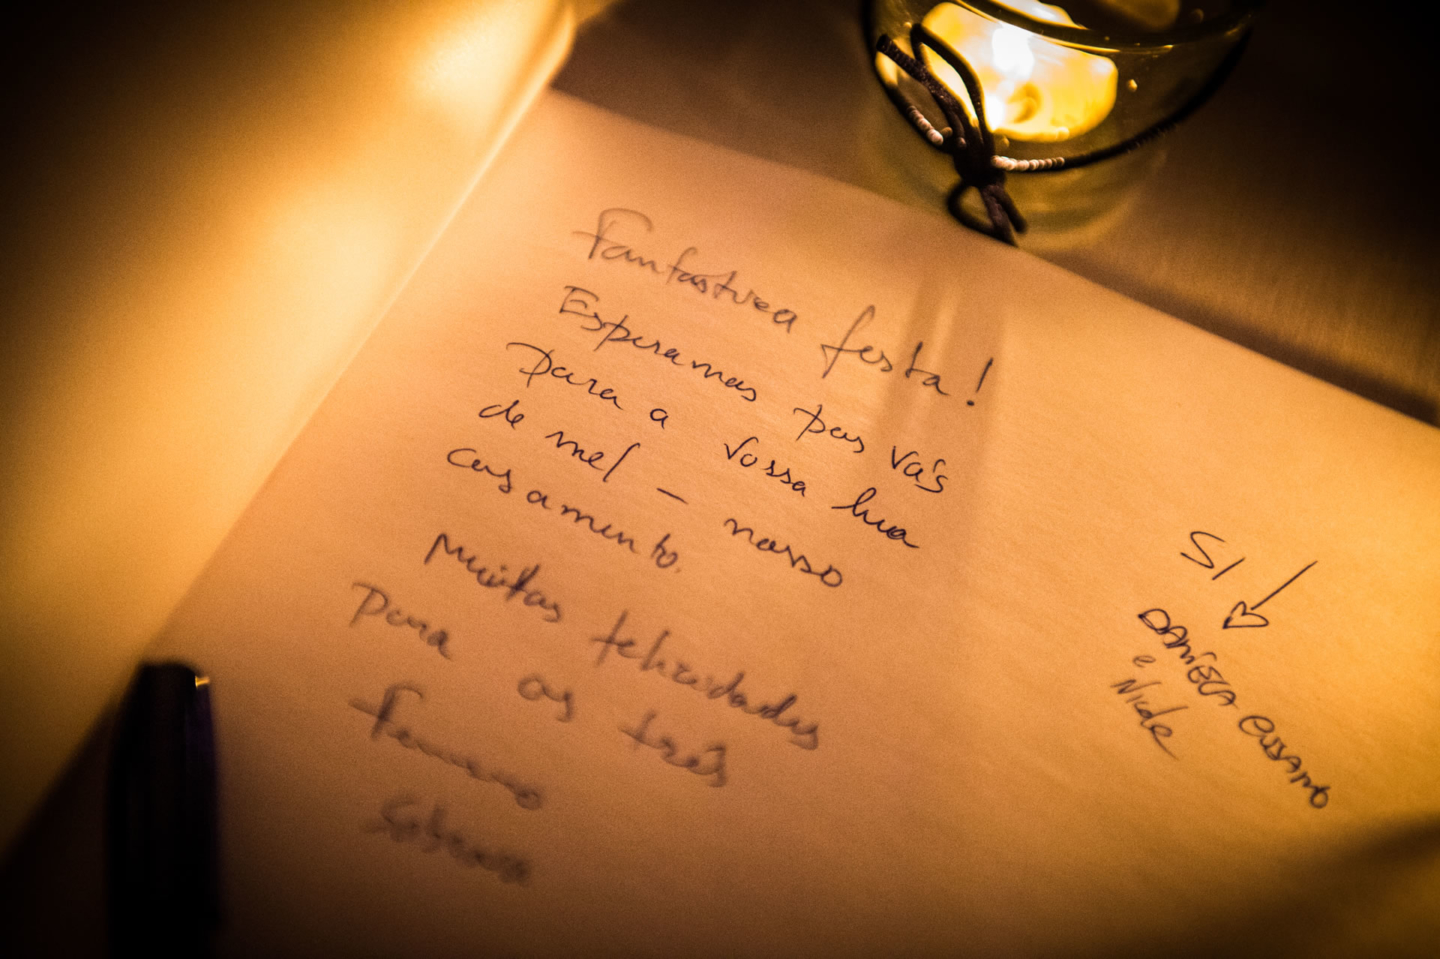 Fantastica festa!
Esperamos por vós
para a vossa lua
de mel – nosso
casamento.
Muitas felicidades
para os três
SI
DANIELA
e Nicole